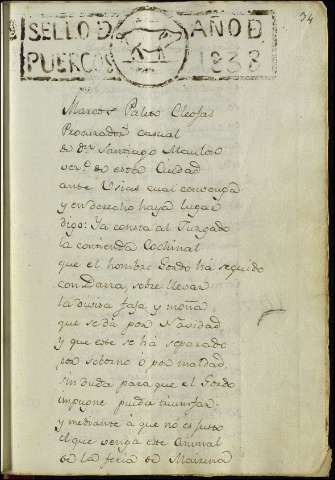 SELLO D AÑO D
PUERCOS 1838
34
Marcos Paleto Cleofas
Procurador casual
de Dn Santiago Maulos
vero. de esta Ciudad
ante Usias cual convenga
y en derecho haya lugar
digo: Ya consta al Juzgado
la contienda Cochinal
que el hombre Gordo há seguido
con Darra, sobre llevar
la divisa faja y moña,
que se dá por Navidad
y que este se há separado
por soborno ó por maldad,
sin duda para que el Gordo
impugne pueda triunfar:
y mediante á que no es justo
el que venga este animal
de la feria de Mairena